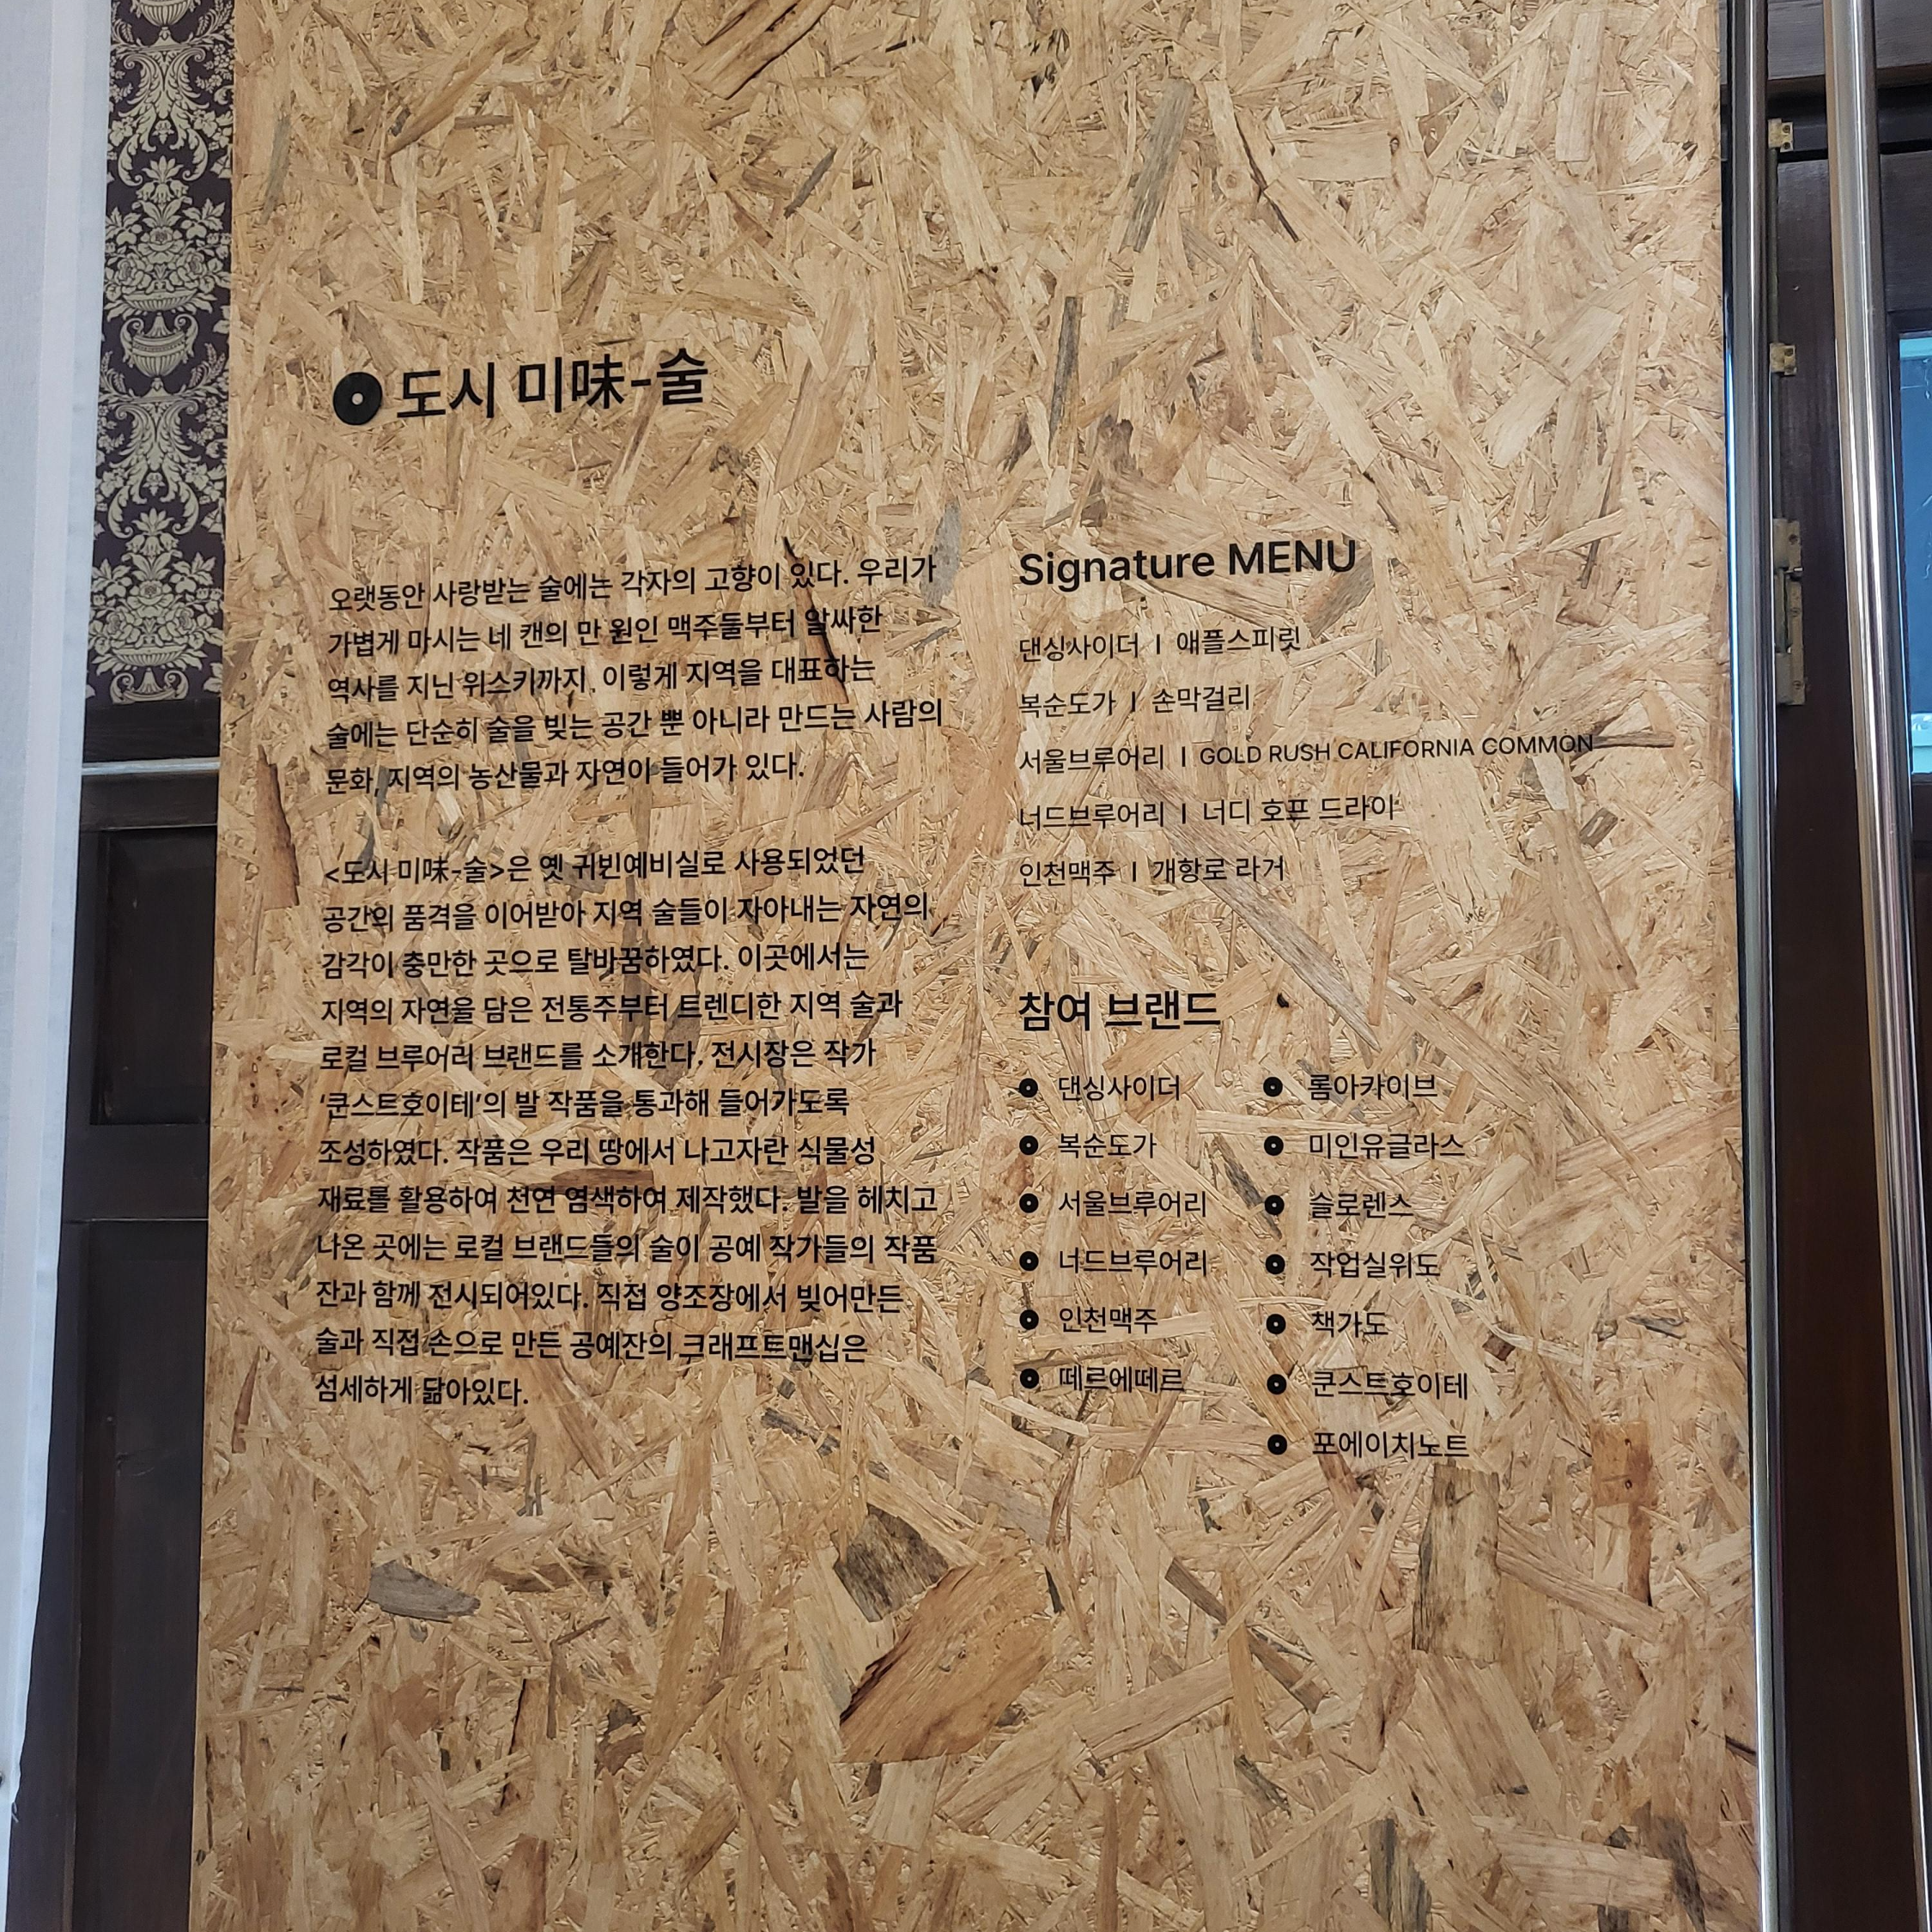 도시 미味-술
오랫동안 사랑받는 술에는 각자의 고향이 있다. 우리가
가볍게 마시는 네 캔의 만 원인 맥주들부터 알싸한
역사를 지닌 위스키까지. 이렇게 지역을 대표하는
술에는 단순히 술을 빚는 공간 뿐 아니라 만드는 사람의
문화, 지역의 농산물과 자연이 들어가 있다.
<도시 미味-술>은 옛 귀빈예비실로 사용되었던
공간의 품격을 이어받아 지역 술들이 자아내는 자연의
감각이 충만한 곳으로 탈바꿈하였다. 이곳에서는
지역의 자연을 담은 전통주부터 트렌디한 지역 술과
로컬 브루어리 브랜드를 소개한다. 전시장은 작가
‘쿤스트호이테’의 발 작품을 통과해 들어가도록
조성하였다. 작품은 우리 땅에서 나고자란 식물성
재료를 활용하여 천연 염색하여 제작했다. 발을 헤치고
나온 곳에는 로컬 브랜드들의 술이 공예 작가들의 작품
잔과 함께 전시되어있다. 직접 양조장에서 빚어만든
술과 직접 손으로 만든 공예잔의 크래프트맨십은
섬세하게 닮아있다.
Signature MENU
댄싱사이더 | 애플스피릿
복순도가 | 손막걸리
서울브루어리 | GOLD RUSH CALIFORNIA COMMON
너드브루어리 | 너디 호프 드라이
인천맥주 | 개항로 라거
참여 브랜드
댄싱사이더
복순도가
서울브루어리
너드브루어리
인천맥주
떼르에떼르
롬아카이브
미인유글라스
슬로렌스
작업실위도
책가도
쿤스트호이테
포에이치노트